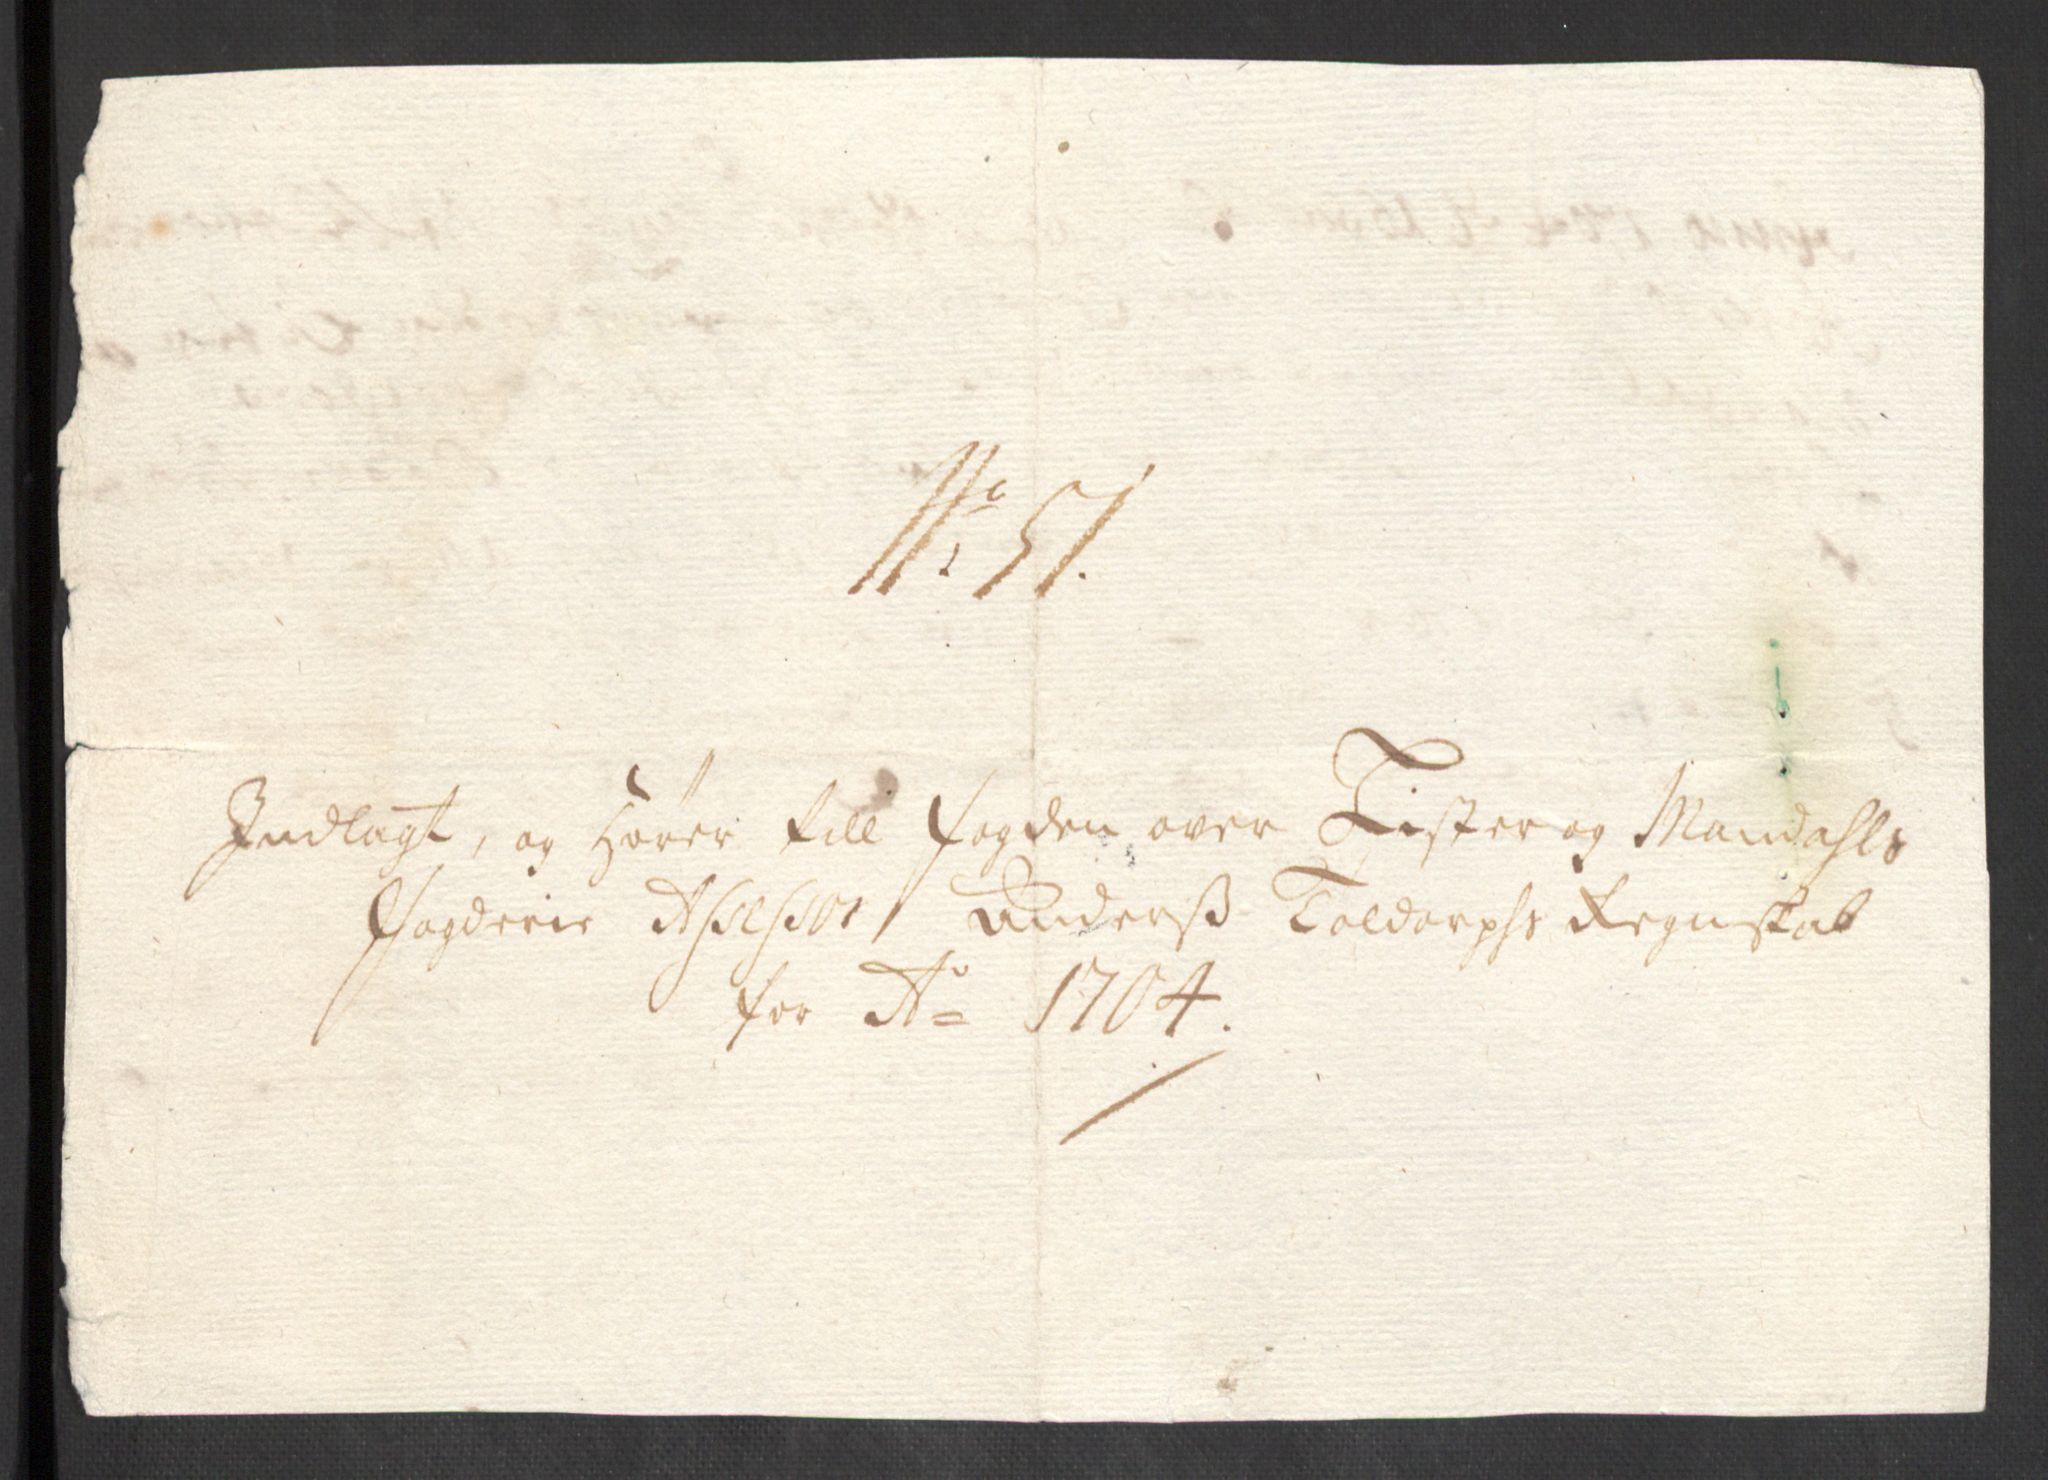 No: 51.
Indlagt, og Hörer till Fogden over Lister og Mandahls
Fogderie Assessor Anderss Toldorphs Regnskab
for Ao 1704.